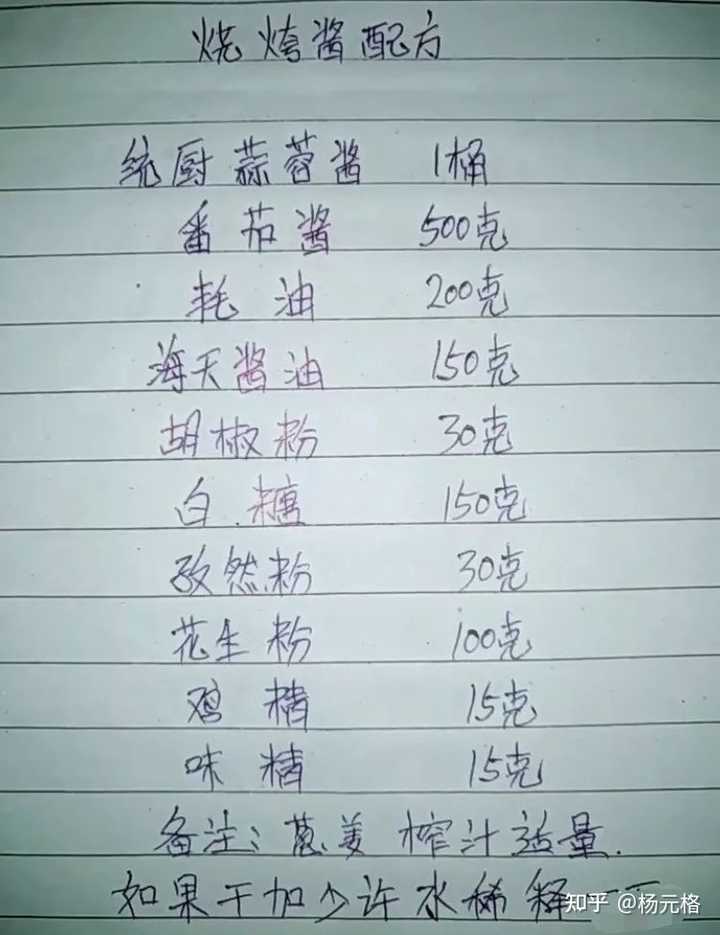 烧烤酱配方
统厨蒜蓉酱 1桶
番茄酱 500克
耗油 200克
海天酱油 150克
胡椒粉 30克
白.糖 150克
孜然粉 30克
花生粉 100克
鸡精 15克
味精 15克
备注:葱姜榨汁适量.
如果干加少许水稀释一下
知乎 @杨元格